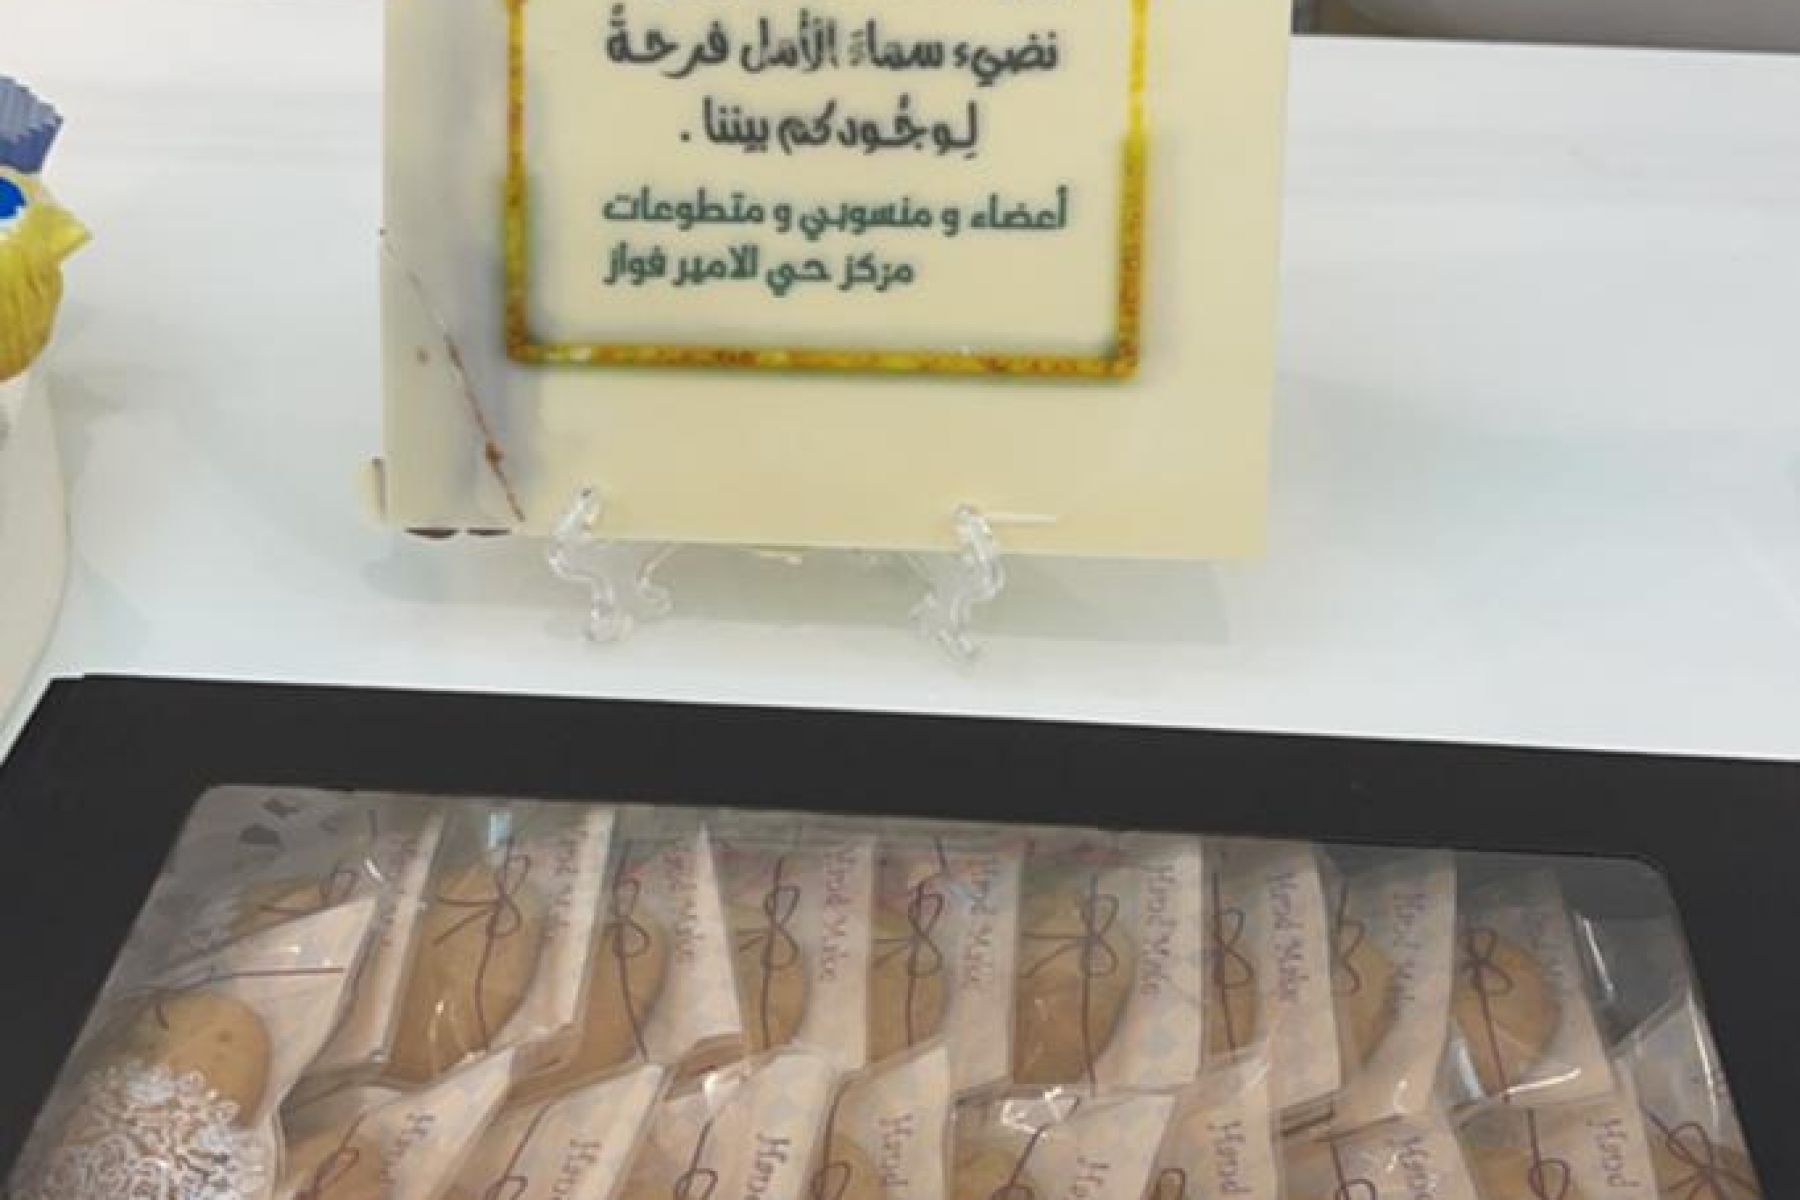 نضيء سماءَ الأمل فرحةً
لِوجُودكم بيننا .
أعضاء و منسوبي و متطوعات
مركز حي الامير فواز
Hand Make
Hand Make
Hand Make
Hand Make
Hand Make
Hand Make
Hand Make
Hand
Hand
Hand
Hand
Hand
Hand